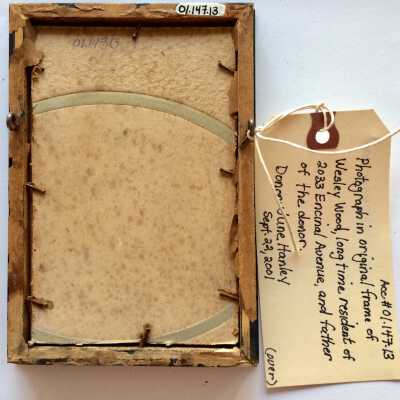 01.147.13
01.147.13
Acc# 01.147.13
Photograph in original frame of
Wesley Wood, longtime resident of
2033 Encinal Avenue, and father
of the donor.
Donor: June Hanley
Sept. 22, 2001
(over)